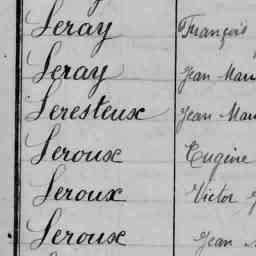 Leray François
Leray Jean Mari
Leresteux Jean Mari
Leroux Eugène
Leroux Victor
Leroux Jean